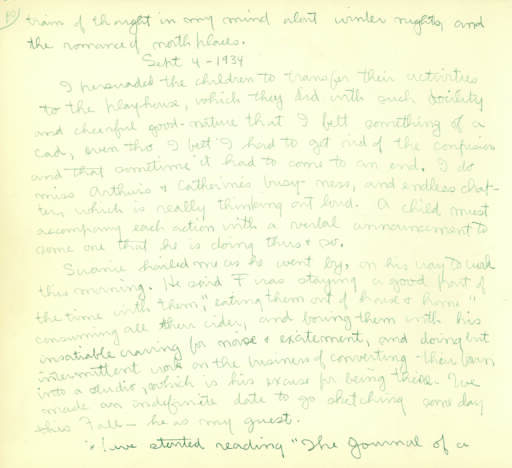 train of thought in my mind about winter nights, and
the romance of north places.
Sept 4 - 1934
I persuaded the children to transfer their activities
to the playhouse, which they did with such docility
and cheerful good-nature that I felt something of a
cad, even tho I felt I had to get rid of the confusion
and that sometime it had to come to an end. I do
miss Arthur's & Catherine's busy-ness, and endless chat-
ter, which is really thinking out loud. A child must
accompany each action with a verbal announcement to
some one that he is doing thus & so.
hailed me as he went by, on his way to work
this morning. He said F was staying a good part of
the time with them, "eating them out of house & home"
consuming all their cider, and boring them with his
insatiable craving for noise & excitement, and doing but
intermittent work on the business of converting their barn
into a studio, which is his excuse for being there. I've
made an indefinite date to go sketching some day
this Fall - he as my guest.
I've started reading "The Journal of a